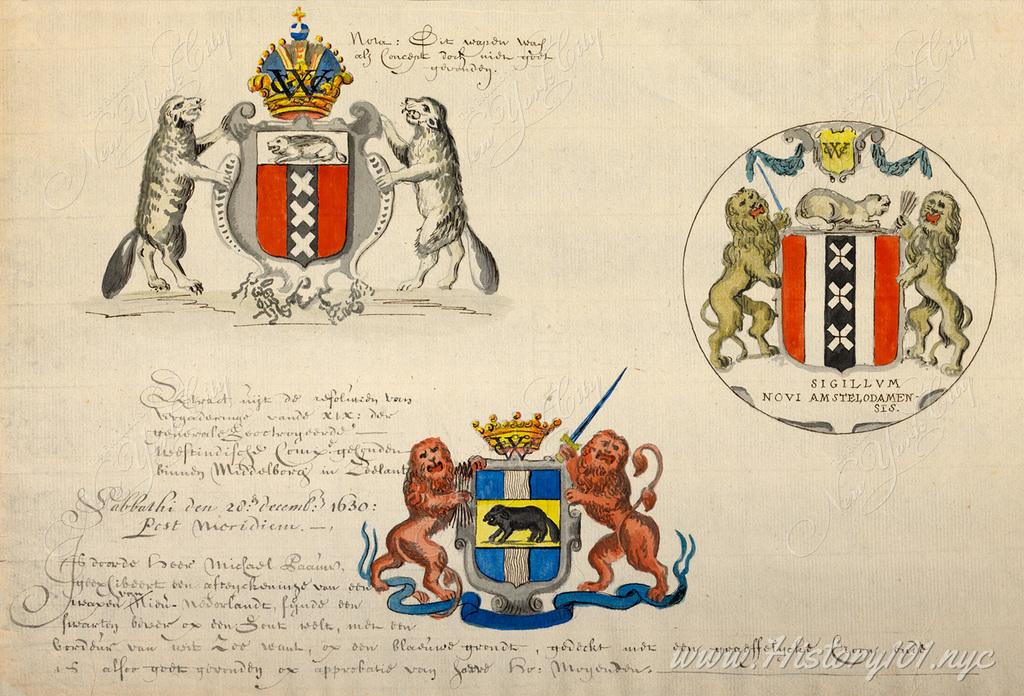 Nota: Dit wapen was
als Concept doch niet goet
gevonden.
SIGILLVM
NOVI AMSTELODAMEN-
SIS.
Extract uijt de resolutien van
vergaderinge vande XIX: der
generale Geoctroyeerde
Westindische Comp: gehouden
binnen Middelborg in Zeelant
Sabbathi den 28: decemb: 1630:
Post Meridiem.
heer Michael Paauw,
een afteyckeninge van een
wapen van Nieu-Nederlandt, sijnde een
swarten bever op een Gout velt, met een
bordeur van wit Zee want, op een blaeuwe grondt, gedeckt met een graeffelycke Croon ende
is alsoo goet gevonden op approbatie van haere Ho: Mogenden.
www.History101.nyc